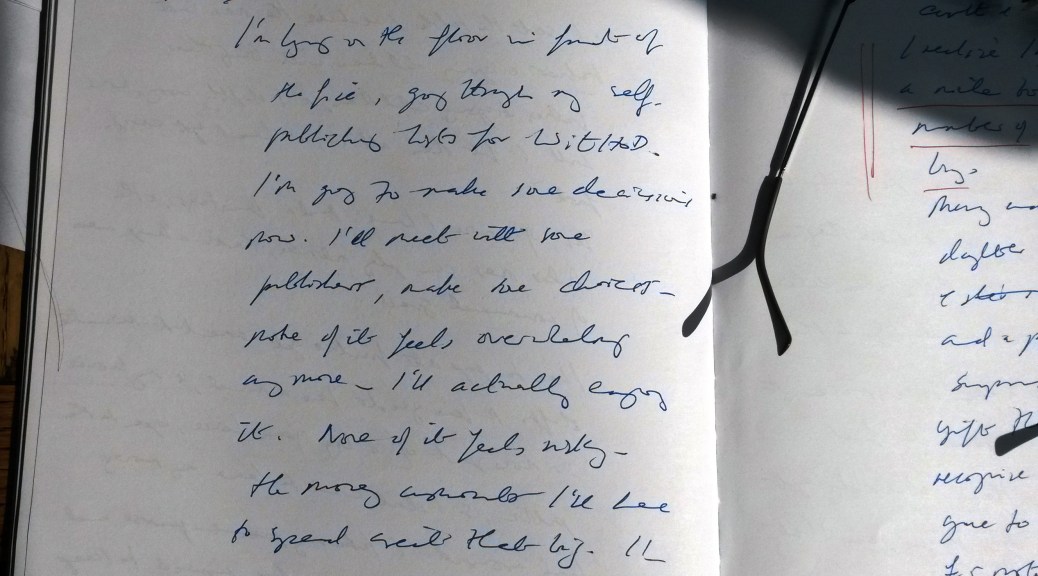 I'm lying on the floor in front of
the fire, going through my self-
publishing lists for WITHOD.
I'm going to make some decisions
now. I'll meet with some
publishers, make some choices -
none of it feels overwhelming
any more - I'll actually enjoy
it. None of it feels risky -
the money amounts I'll have
to spend aren't that big.
I realise
a mile
number of
day.
daughter
and a p
gift
recognise
give to